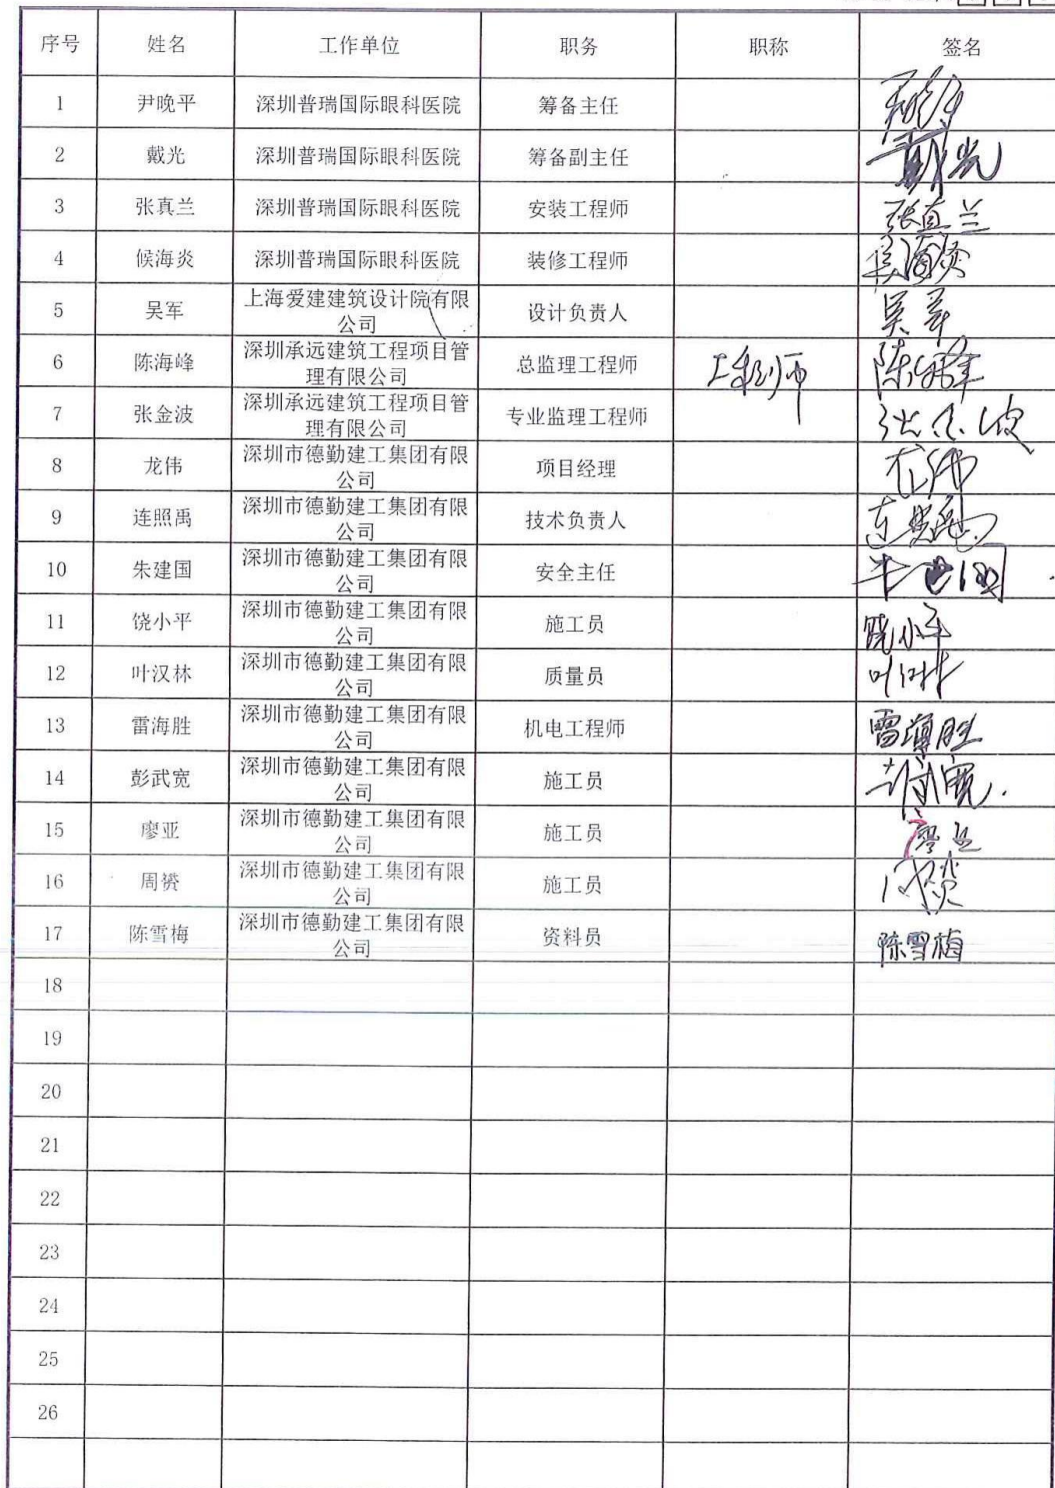 序号 姓名 工作单位 职务 职称 签名
1 尹晚平 深圳普瑞国际眼科医院 筹备主任
2 戴光 深圳普瑞国际眼科医院 筹备副主任 戴光
3 张真兰 深圳普瑞国际眼科医院 安装工程师 张真兰
4 候海炎 深圳普瑞国际眼科医院 装修工程师
5 吴军 上海爱建建筑设计院有限 设计负责人 吴军
公司
6 陈海峰 深圳承远建筑工程项目管 总监理工程师 工程师 陈海峰
理有限公司
7 张金波 深圳承远建筑工程项目管 专业监理工程师 张金波
理有限公司
8 龙伟 深圳市德勤建工集团有限 项目经理 龙伟
公司
9 连照禹 深圳市德勤建工集团有限 技术负责人 连照禹
公司
10 朱建国 深圳市德勤建工集团有限 安全主任
公司
11 饶小平 深圳市德勤建工集团有限 施工员 饶小平
公司
12 叶汉林 深圳市德勤建工集团有限 质量员 叶汉林
公司
13 雷海胜 深圳市德勤建工集团有限 机电工程师 雷海胜
公司
14 彭武宽 深圳市德勤建工集团有限 施工员 彭武宽
公司
15 廖亚 深圳市德勤建工集团有限 施工员 廖亚
公司
16 周赟 深圳市德勤建工集团有限 施工员
公司
17 陈雪梅 深圳市德勤建工集团有限 资料员 陈雪梅
公司
18
19
20
21
22
23
24
25
26